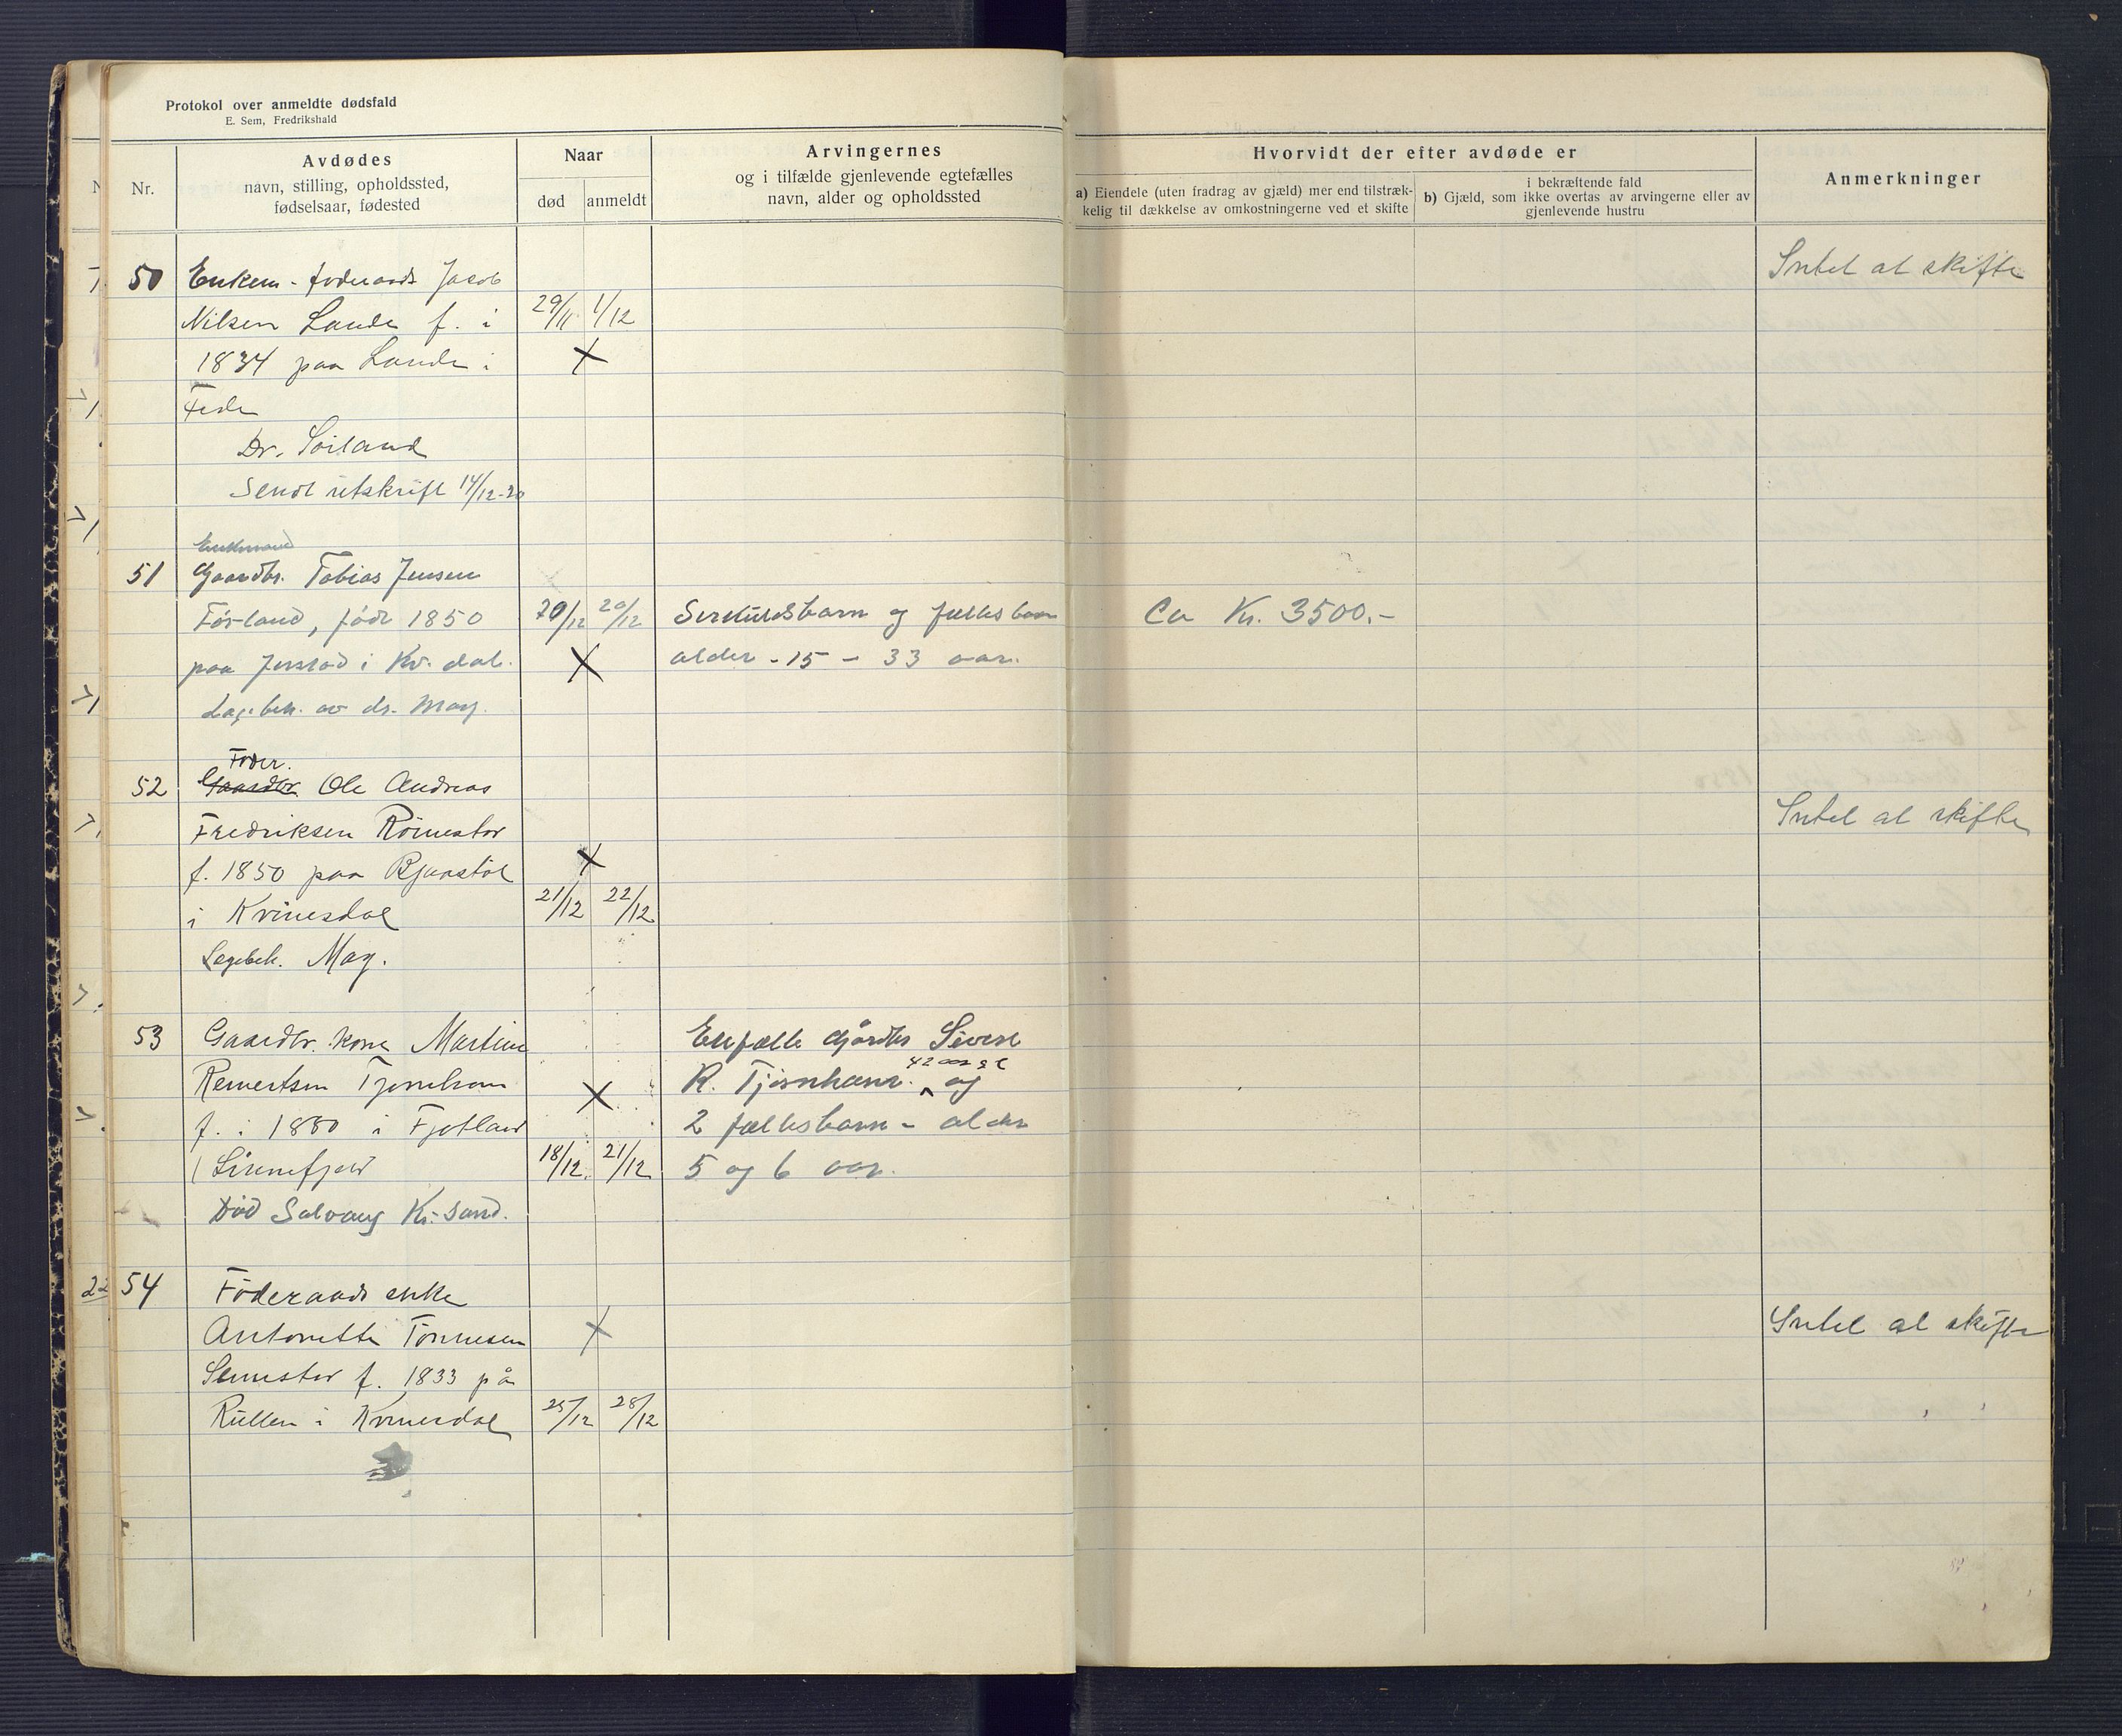 Protokol over anmeldte dødsfald
E. Sem, Fredrikshald
Nr.
Avdødes
navn, stilling, opholdssted,
fødselsaar, fødested
Naar
død
anmeldt
Arvingernes
og i tilfælde gjenlevende egtefælles
navn, alder og opholdssted
Hvorvidt der efter avdøde er
a) Eiendele (uten fradrag av gjæld) mer end tilstræk-
kelig til dækkelse av omkostningerne ved et skifte
i bekræftende fald
b) Gjæld, som ikke overtas av arvingerne eller av
gjenlevende hustru
Anmerkninger
50 Enkem.føderaads Jacob
Intet at skifte
Nilsen Lande f. i 29/11 1/12
1834 paa Lande i X
Feda
Dr. Soiland
Sendt utskrift 14/12-20
Enkemand
51 Gaardbr. Tobias Jensen
Førland, født 1850 20/12 20/12 Særkuldsbarn og fælles barn Ca Kr. 3500.-
paa i Kv. dal. X alder - 15 - 33 aar.
Lægebeh. av dr. May.
Føder.
52 Gaardbr. Ole Andreas
Fredriksen Intet at skifte
f. 1850 paa X
i Kvinesdal 21/12 22/12
Lægebeh. May.
53 Gaardbr. kone Martine Ektfælle Gårdbr Sivert
42 aar gl
Reinertsen Tjørnhom X R. Tjørnhom. og
f. i 1880 i Fjotland 2 fællesbarn - alder
18/12 21/12 5 og 6 aar.
Død Solvang Kr. sand.
54 Føderaads enke
Antonette Tønnesen X Intet at skifte
f. 1833 på
i Kvinesdal 25/12 28/12
22